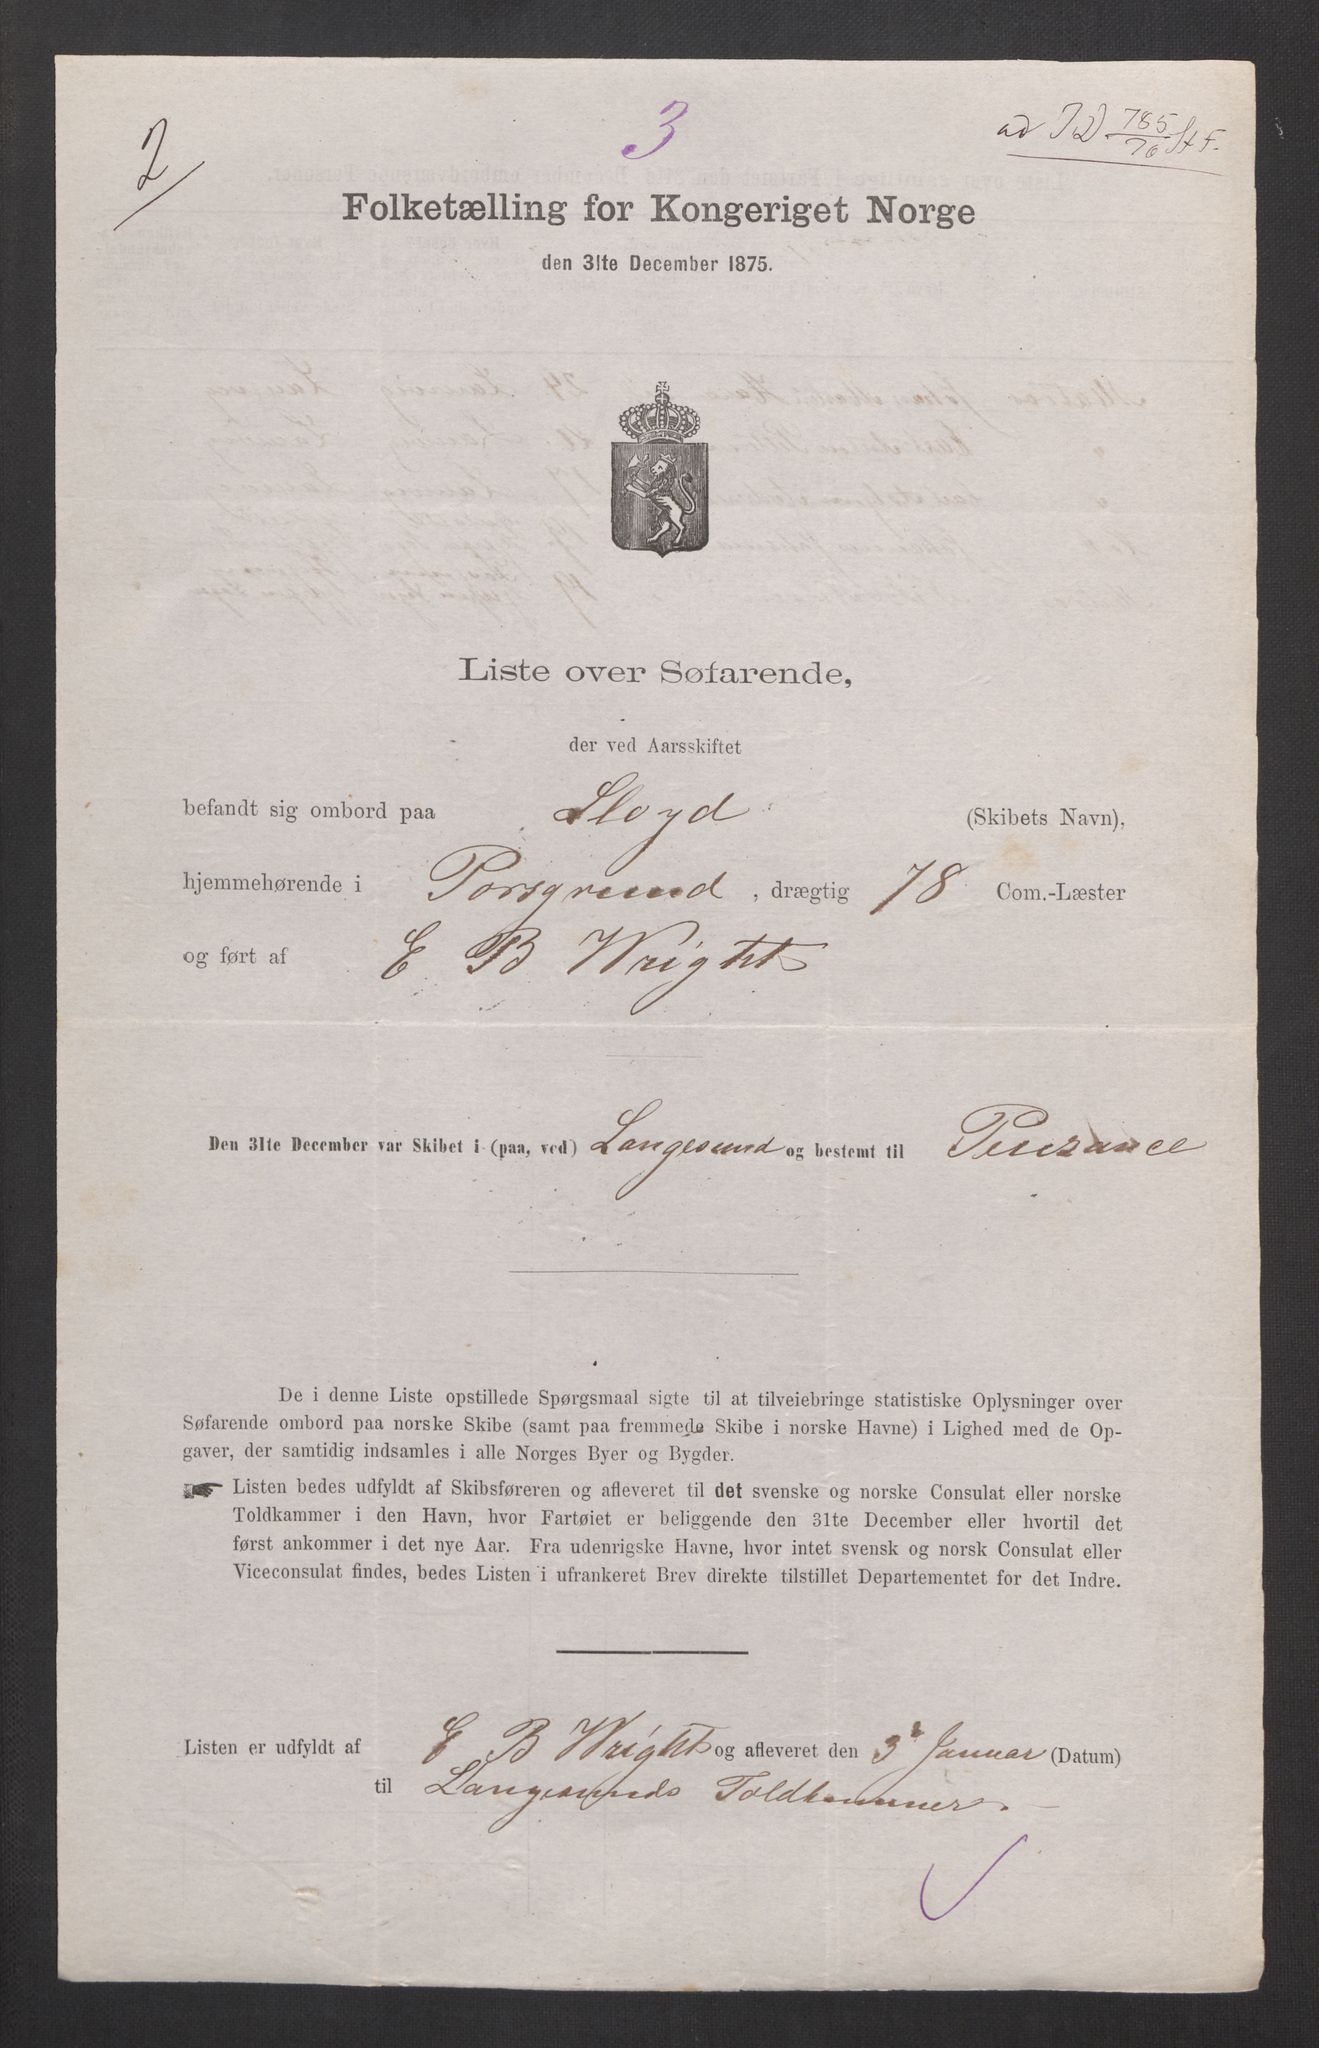 2
3
ad ID 785/76 St F.
Folketælling for Kongeriget Norge
den 31te December 1875.
Liste over Søfarende,
der ved Aarsskiftet
befandt sig ombord paa Lloyd (Skibets Navn),
hjemmehørende i Porsgrund, drægtig 78 Com.-Læster
og ført af E B Wright
Den 31te December var Skibet i (paa, ved) Langesund og bestemt til Penzance
De i denne Liste opstillede Spørgsmaal sigte til at tilveiebringe statistiske Oplysninger over
Søfarende ombord paa norske Skibe (samt paa fremmede Skibe i norske Havne) i Lighed med de Op-
gaver, der samtidig indsamles i alle Norges Byer og Bygder.
Listen bedes udfyldt af Skibsføreren og afleveret til det svenske og norske Consulat eller norske
Toldkammer i den Havn, hvor Fartøiet er beliggende den 31te December eller hvortil det
først ankommer i det nye Aar. Fra udenrigske Havne, hvor intet svensk og norsk Consulat eller
Viceconsulat findes, bedes Listen i ufrankeret Brev direkte tilstillet Departementet for det Indre.
Listen er udfyldt af E B Wright og afleveret den 3 Januar (Datum)
til Langesunds Toldkammer